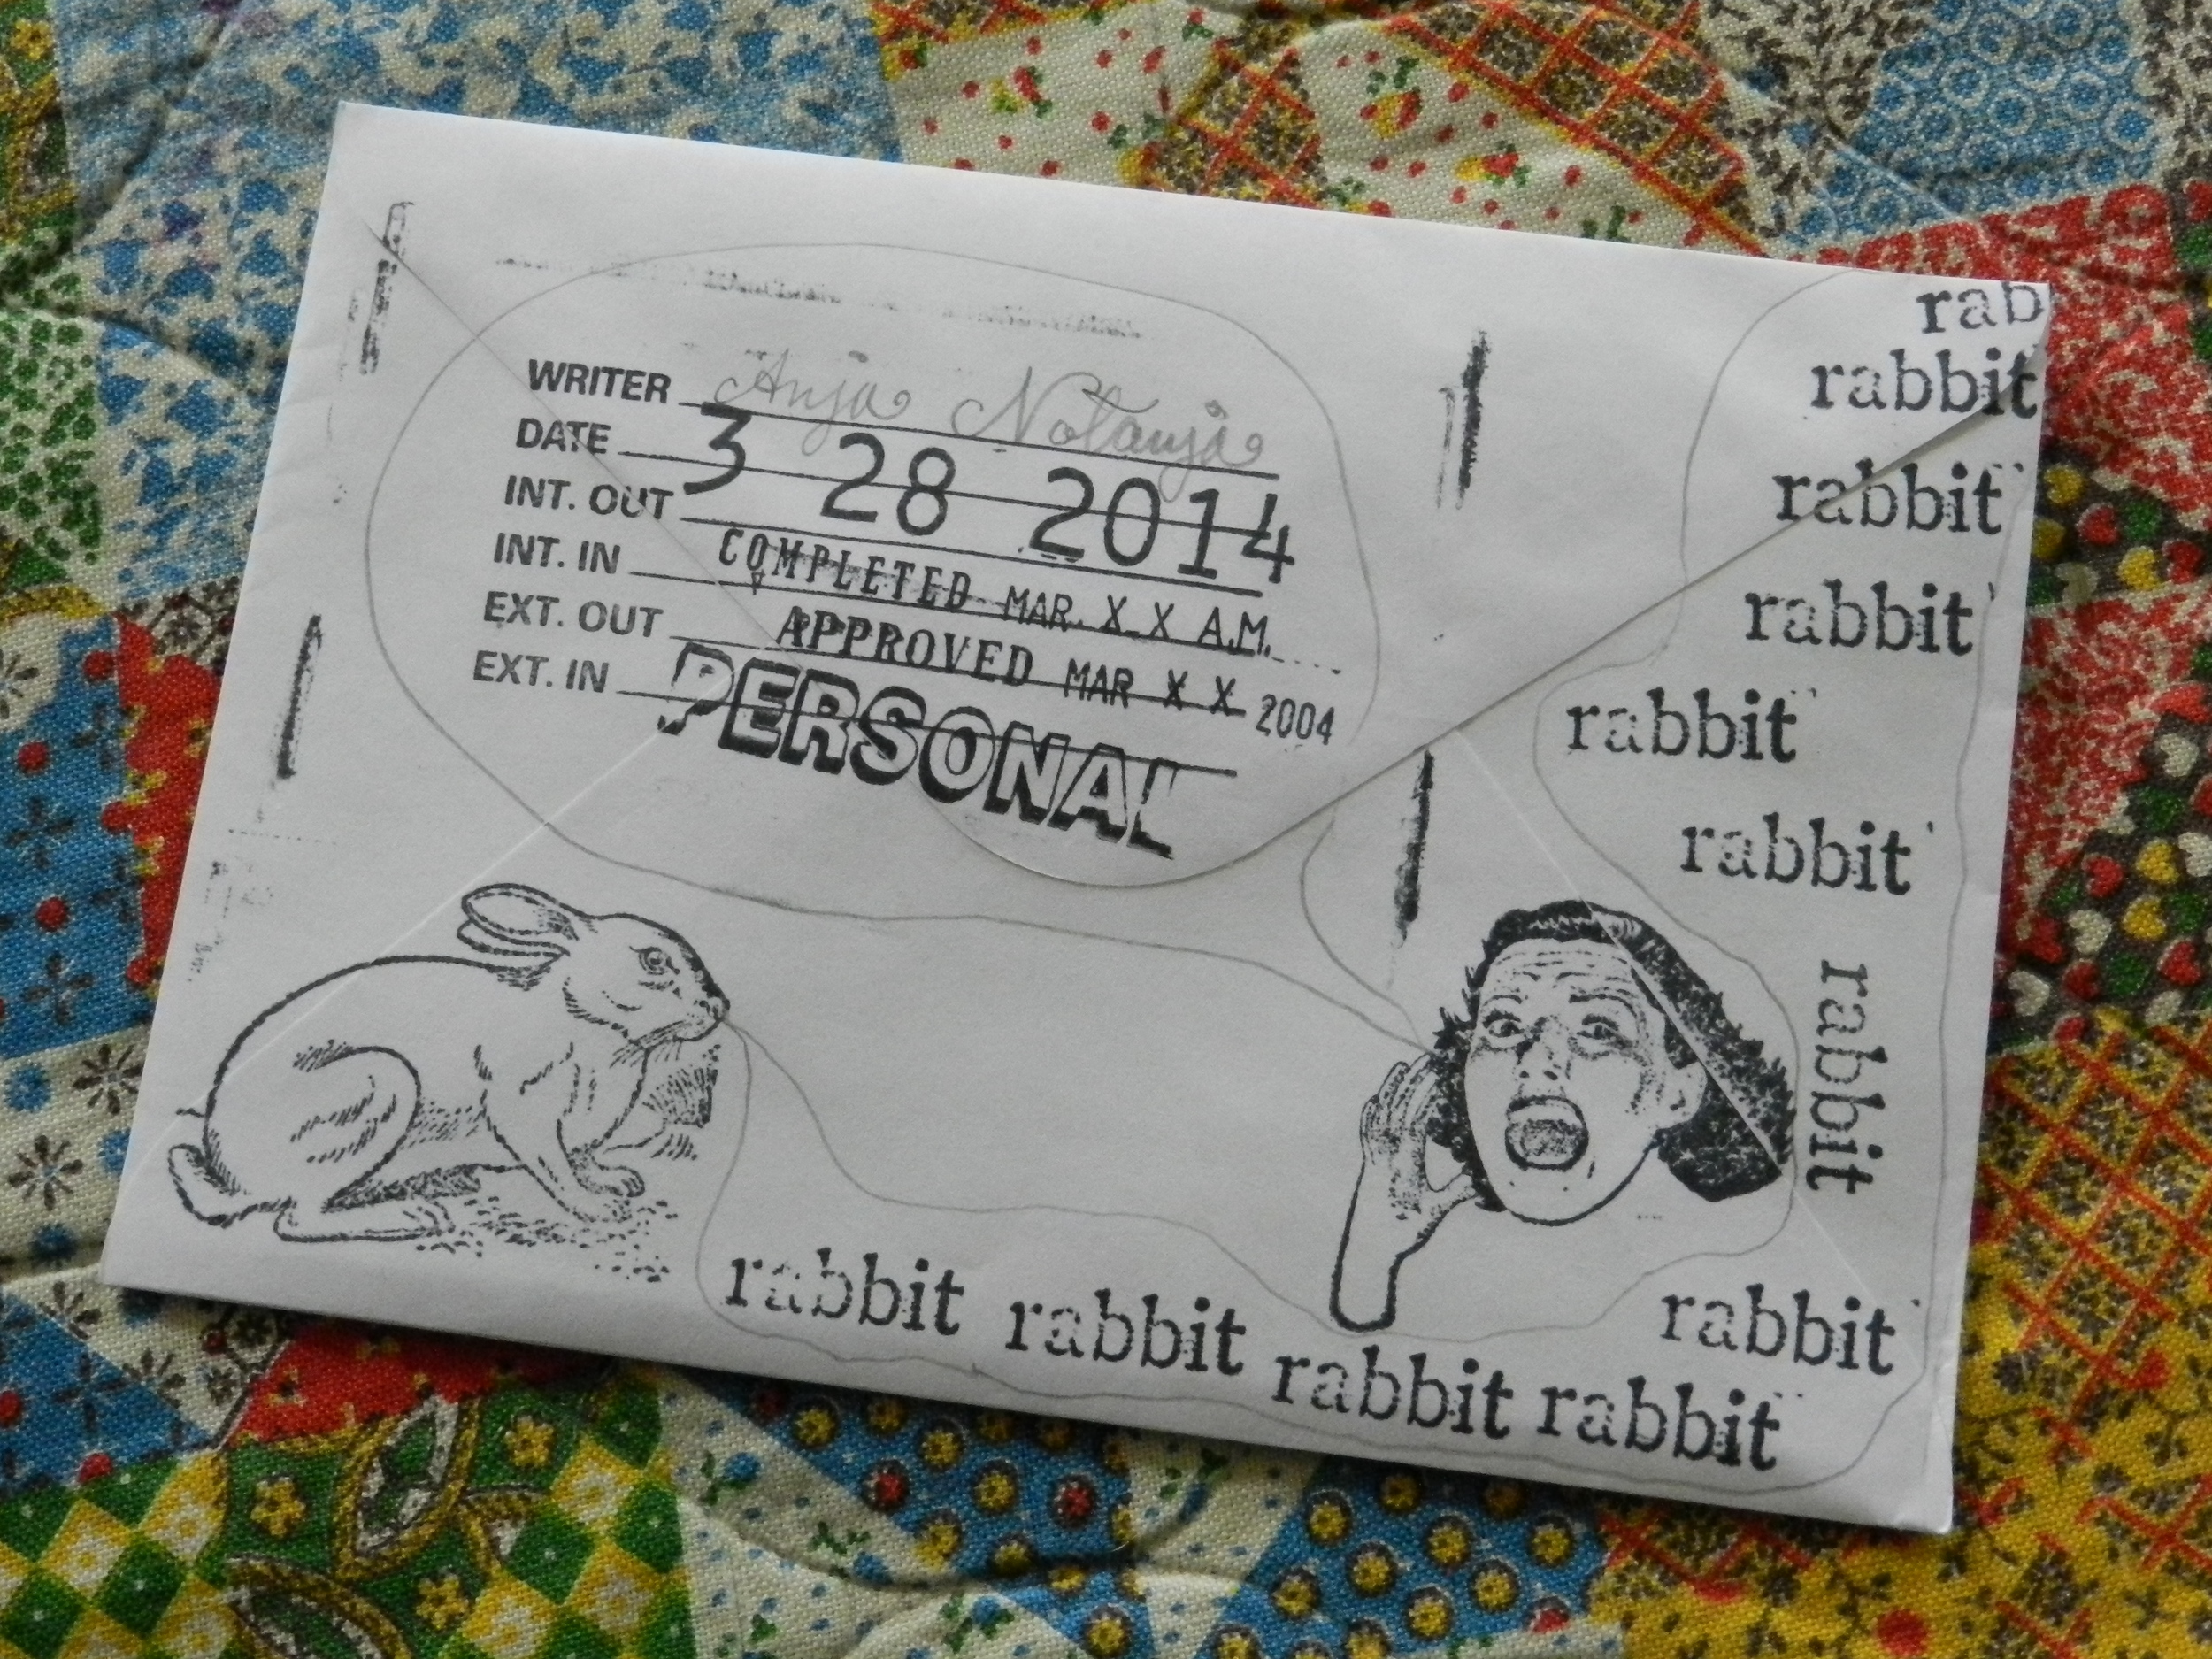 WRITER Anja Notanja
DATE 3 28 2014
INT. OUT
INT. IN COMPLETED MAR. X X A.M.
EXT. OUT APPROVED MAR X X 2004
EXT. IN PERSONAL
rab
rabbit
rabbit
rabbit
rabbit
rabbit
rabbit
rabbit
rabbit rabbit rabbit rabbit